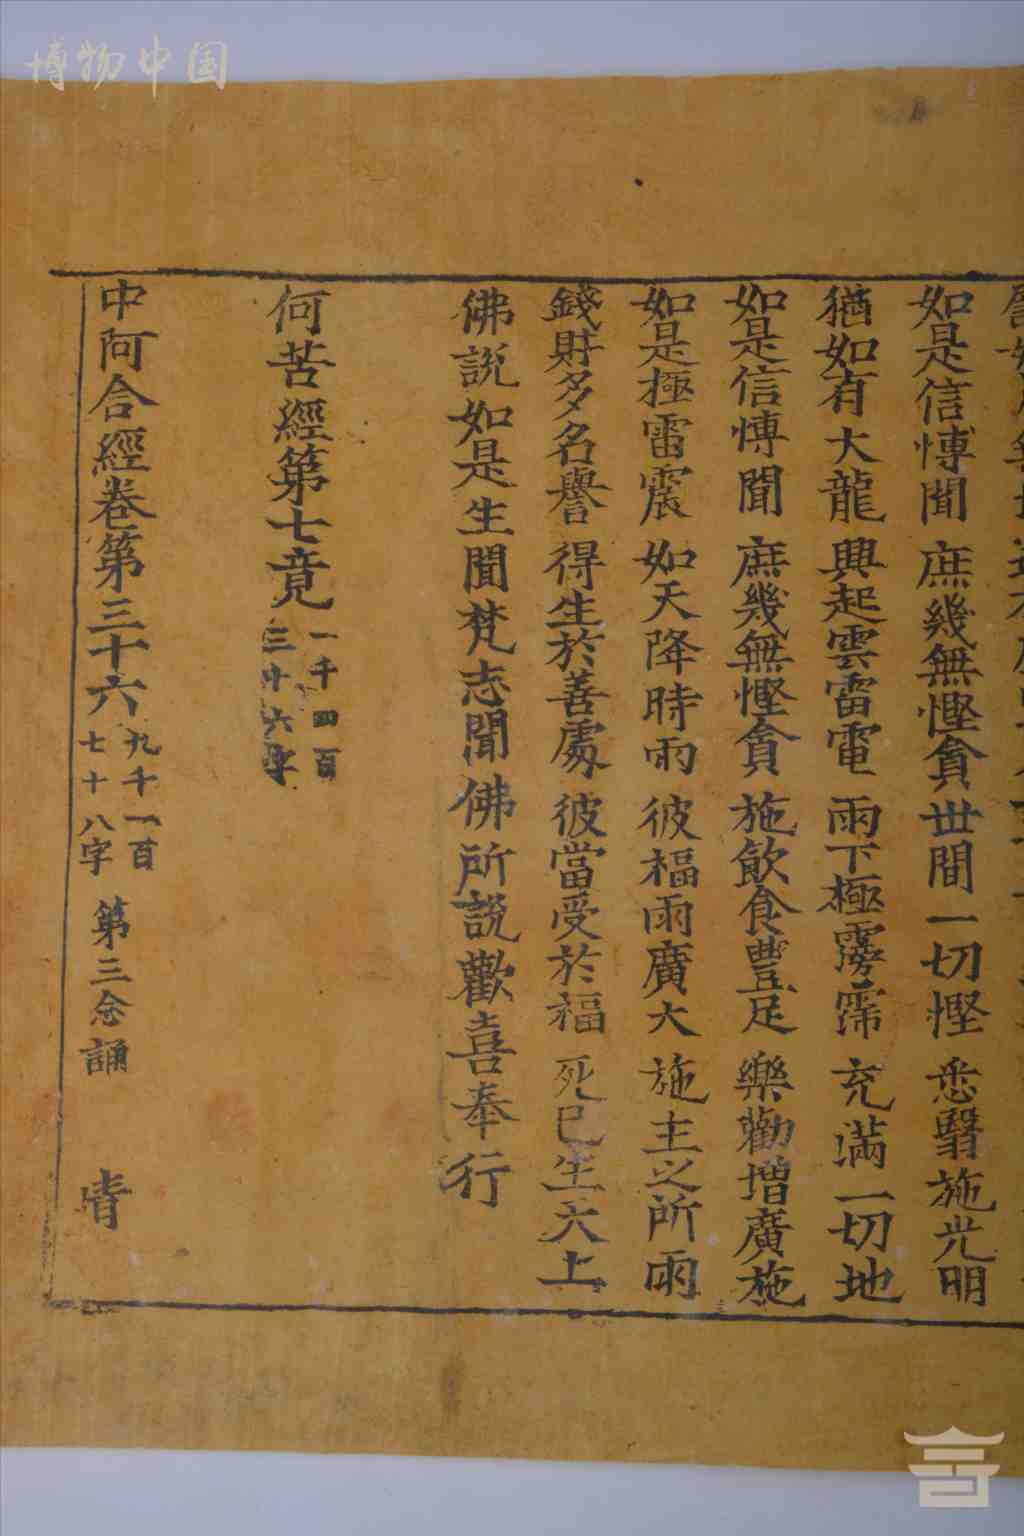 如是信慱聞　庶幾無慳貪　世間一切慳　悉翳施光明
猶如有大龍　興起雲雷電　雨下極霶霈　充滿一切地
如是信慱聞　庶幾無慳貪　施飲食豐足　樂勸增廣施
如是極雷震　如天降時雨　彼福雨廣大　施主之所雨
錢財多名譽　得生於善處　彼當受於福　死已生天上
佛說如是生聞梵志聞佛所說歡喜奉行
何苦經第七竟　一千四百
三十六字
中阿含經卷第三十六　九千一百
七十八字　第三念誦　青
博物中国